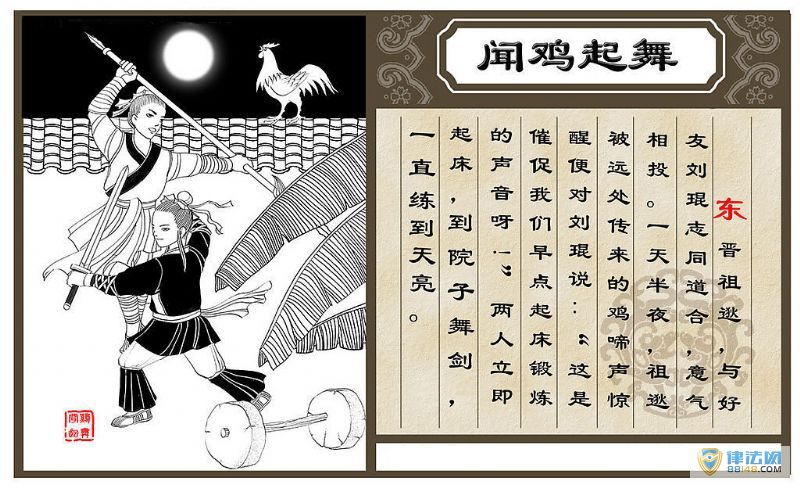 闻鸡起舞
东晋祖逖,与好
友刘琨志同道合,意气
相投。一天半夜,祖逖
被远处传来的鸡啼声惊
醒便对刘琨说:“这是
催促我们早点起床锻炼
的声音呀!”两人立即
起床,到院子舞剑,
一直练到天亮。
律法网
88148.com